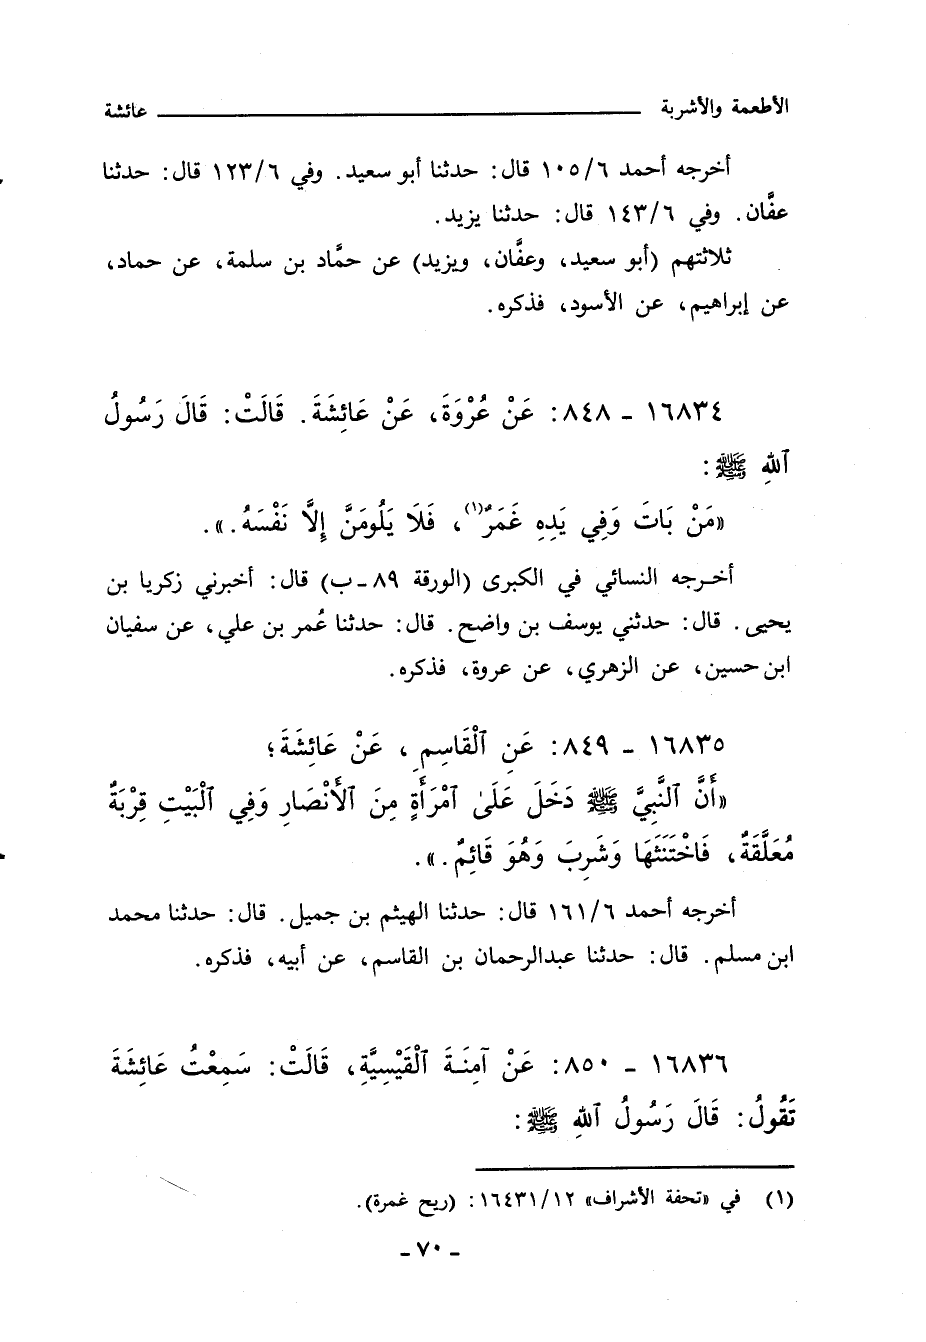 الأطعمة والأشربة عائشة
أخرجه أحمد ١٠٥/٦ قال: حدثنا أبو سعيد. وفي ١٢٣/٦ قال: حدثنا
عفَّان. وفي ١٤٣/٦ قال: حدثنا يزيد.
ثلاثتهم (أبو سعيد، وعفَّان، ويزيد) عن حمَّاد بن سلمة، عن حماد،
عن إبراهيم، عن الأسود، فذكره.
١٦٨٣٤ - ٨٤٨: عَنْ عُرْوَةَ، عَنْ عَائِشَةَ. قَالَتْ: قَالَ رَسُولُ
ٱللهِ ﷺ:
«مَنْ بَاتَ وَفِي يَدِهِ غَمَرٌ(١)، فَلَا يَلُومَنَّ إِلَّا نَفْسَهُ.».
أخرجه النسائي في الكبرى (الورقة ٨٩ - ب) قال: أخبرني زكريا بن
يحيى. قال: حدثني يوسف بن واضح. قال: حدثنا عُمر بن علي، عن سفيان
ابن حسين، عن الزهري، عن عروة، فذكره.
١٦٨٣٥ - ٨٤٩: عَنِ ٱلْقَاسِمِ، عَنْ عَائِشَةَ؛
«أَنَّ ٱلنَّبِيَّ ﷺ دَخَلَ عَلَىٰ ٱمْرَأَةٍ مِنَ ٱلْأَنْصَارِ وَفِي ٱلْبَيْتِ قِرْبَةٌ
مُعَلَّقَةٌ، فَاخْتَنَثَهَا وَشَرِبَ وَهُوَ قَائِمٌ.».
أخرجه أحمد ١٦١/٦ قال: حدثنا الهيثم بن جميل. قال: حدثنا محمد
ابن مسلم. قال: حدثنا عبدالرحمان بن القاسم، عن أبيه، فذكره.
١٦٨٣٦ - ٨٥٠: عَنْ آمِنَةَ ٱلْقَيْسِيَّةِ، قَالَتْ: سَمِعْتُ عَائِشَةَ
تَقُولُ: قَالَ رَسُولُ ٱللهِ ﷺ:
(١) في «تحفة الأشراف» ١٦٤٣١/١٢: (ريح غمرة).
- ٧٠ -